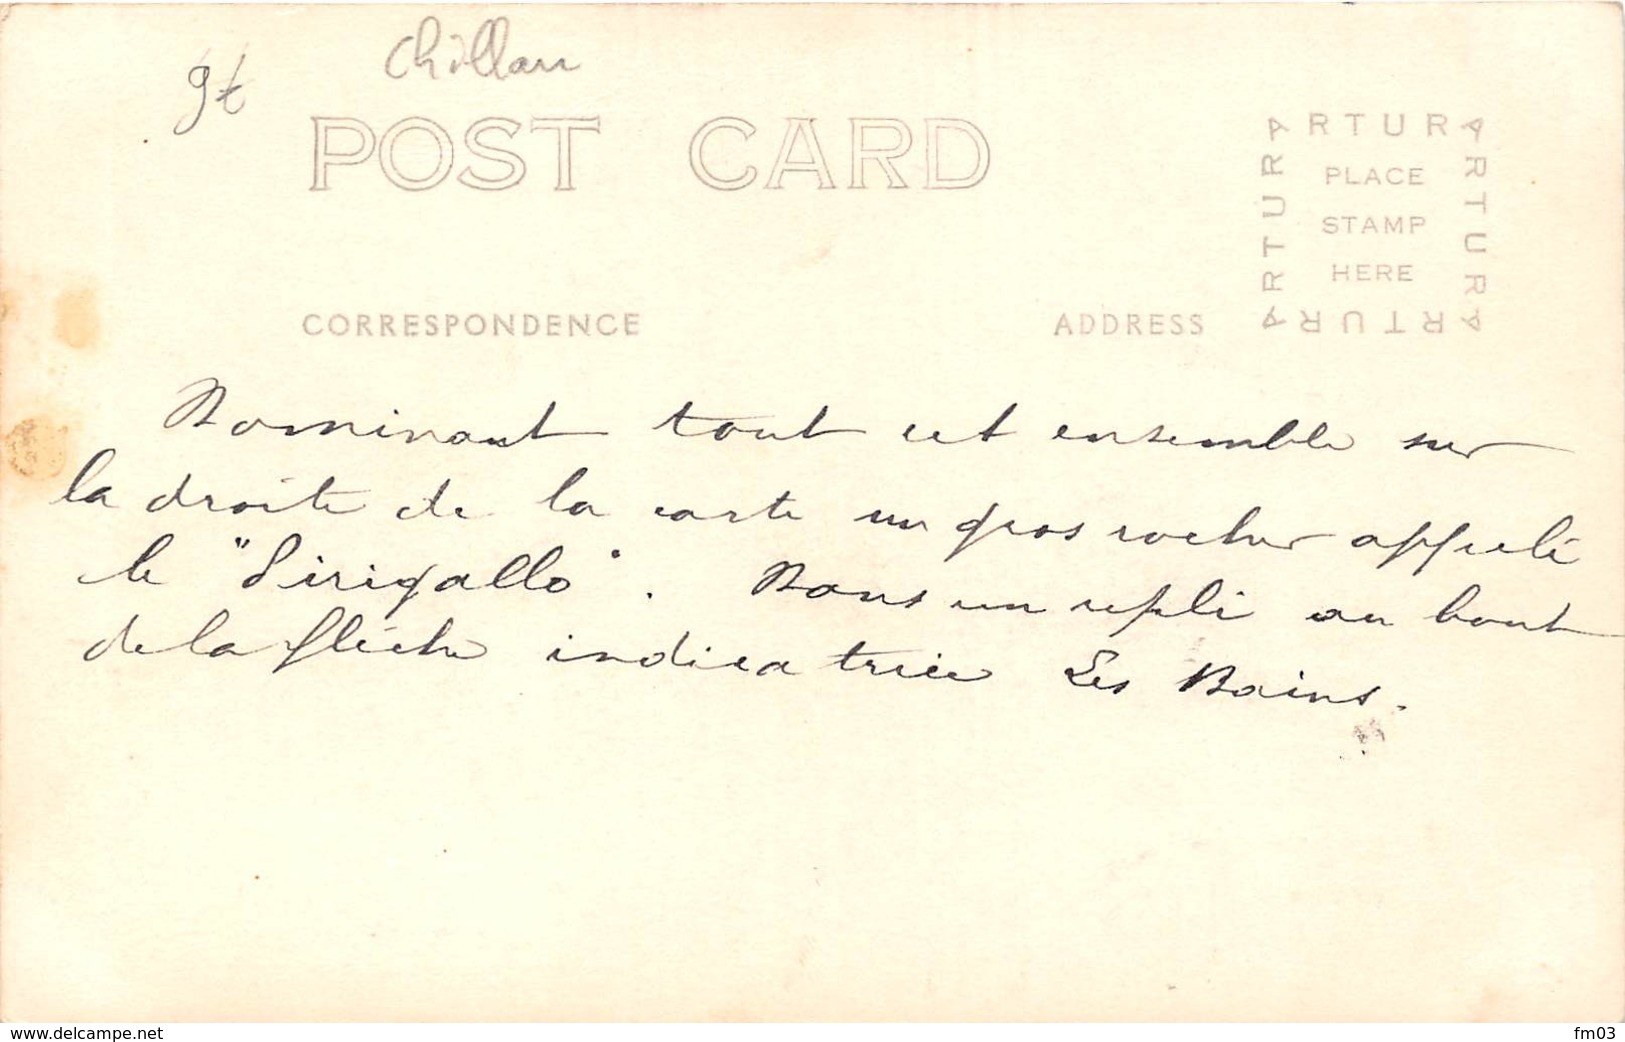 Chillan
POST CARD
ARTURA
PLACE
STAMP
HERE
ARTURA
ARTURA
ARTURA
CORRESPONDENCE
ADDRESS
Dominant tout cet ensemble sur
la droite de la carte un gros rocher appelé
le "Pirigallo". Dans un repli au bout
de la flèche indicatrice Les Bains.
www.delcampe.net
fm03